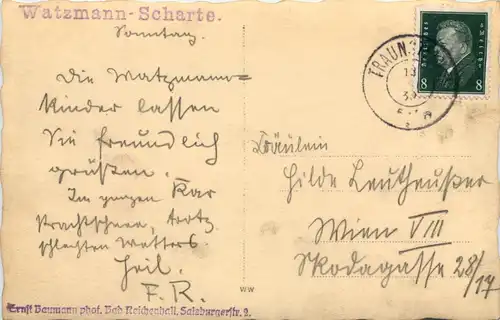 Watzmann-Scharte.
Sonntag.
Die Watzmann-
kinder lassen
Sie freundlich
grüßen.
Im ganzen Kar
Prachtschnee, trotz
schlechten Wetters.
Heil.
F. R.
Ernst Baumann phot. Bad Reichenhall, Salzburgerstr. 2.
WW
TRAUN
Deutsches Reich
8 8
Fräulein
Hilde Leutheußer
Wien VIII
Skodagasse 28/17